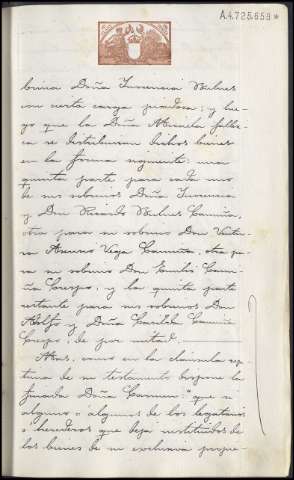 A.4.725.659*
brina Doña Inocencia Nulnes
con cierta carga piadosa; y lue-
go que la Doña Micaela falle-
ca se distribuiran dichos bienes
en la forma siguiente: una
quinta parte para cada uno
de sus sobrinos Doña Inocencia
y Don Ricardo Nulnes Camiña,
otra para su sobrino Don Ventu-
ra Vega Camiña, otra pa-
ra su sobrino Don Emilio Cami-
ña Crespo; y la quinta parte
restante para sus sobrinos Don
Adolfo y Doña Casilda Camiña
Crespo, de por mitad.
Mas, como en la cláusula sep-
tima de su testamento dispone la
finada Doña Carmen: "que si
alguno o algunos de los legatarios
o herederos que deja instituidos de
los bienes de su exclusiva propie-